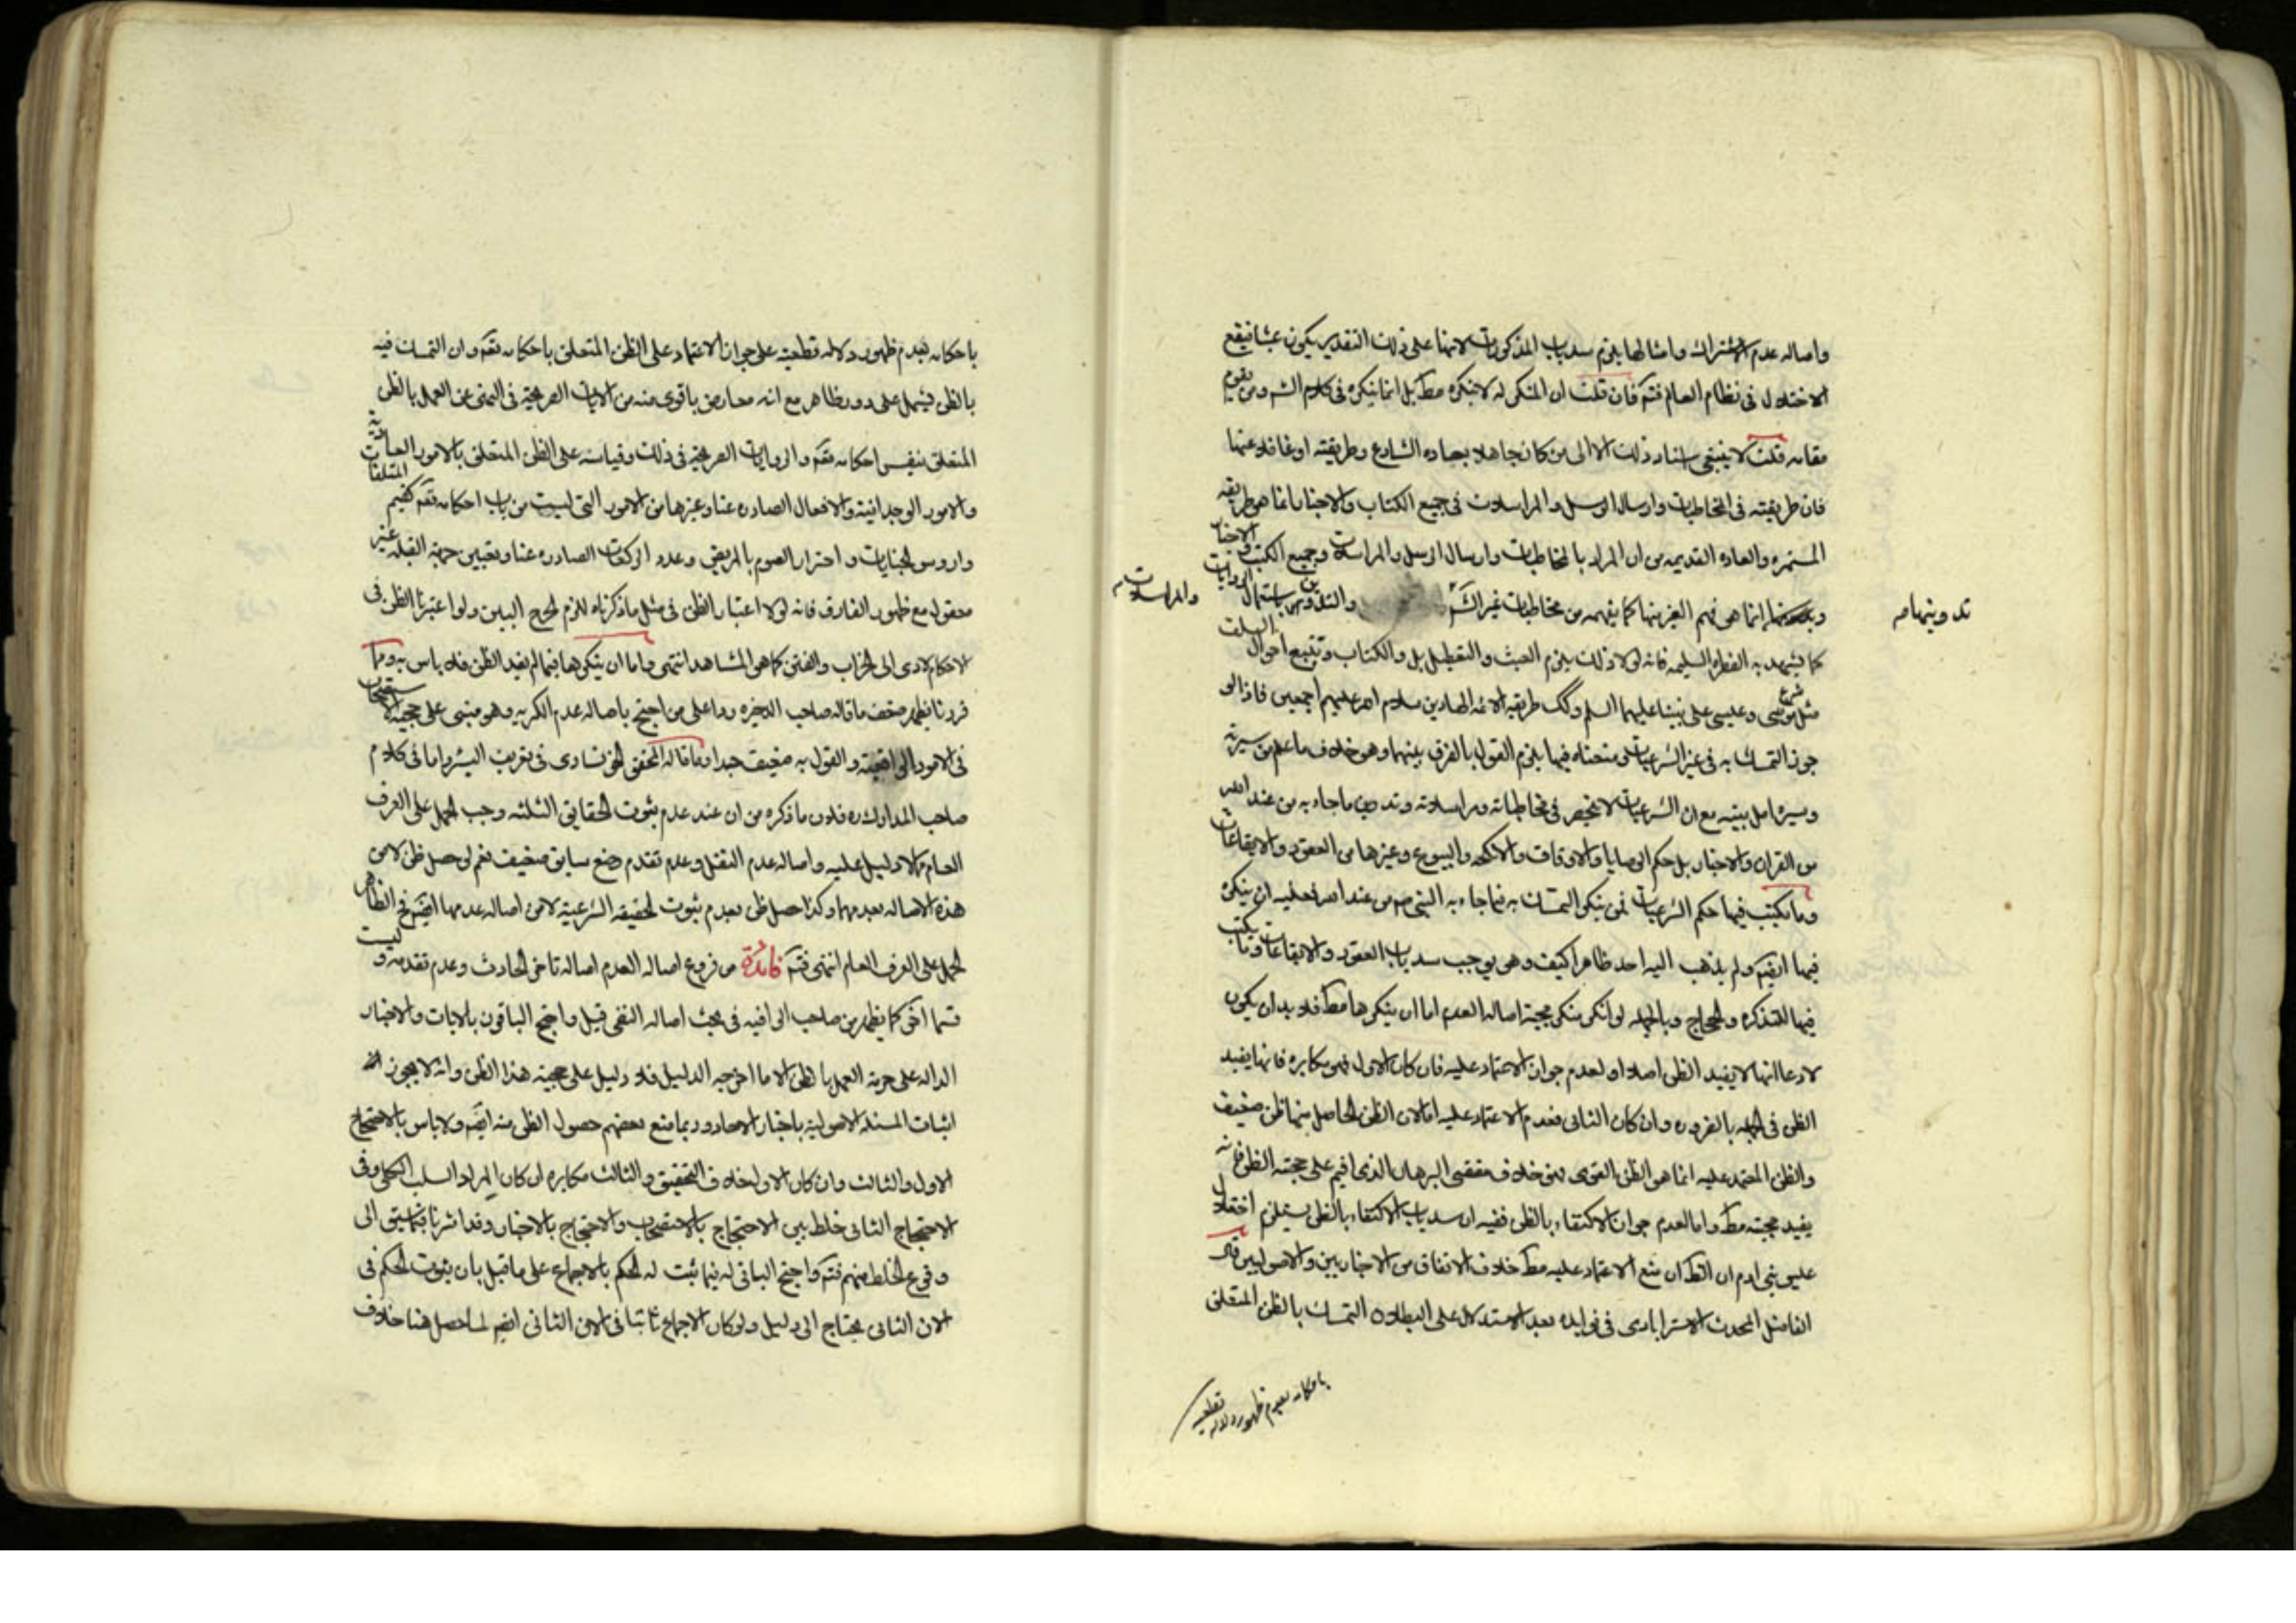 واصاله عدم الاشتراك وامثالها يلزم سد باب المذكورات لانها على ذلك التقدير يكون عبثا فيقع
الاختلال فى نظام العالم فتم فان قلت ان المنكر له لا ينكره مط بل انما ينكره فى كلام الش ومن يقوم
مقامه قلت لا ينبغى اسناد ذلك الا الى من كان جاهلا بعاده الشارع وطريقته او غافلا عنها
فان طريقته فى المخاطبات وارسال الرسل والمراسلات فى جميع الكتاب والاخبار انما هو طريقه
المستمره والعاده القديمه من ان المراد بالمخاطبات وارسال الرسل والمراسلات وجميع الكتب والاخبار
انما هو فهم الغير منها كما يفهمه من مخاطبات غير الش والتدوين باستعمال الروايات
والمراسلات
تدوينها صح
كما يشهد به الفطره السليمه فانه لولا ذلك يلزم العبث والتعطيل بل والكتاب وتتبع احوال السلف
مثل شرع موسى وعيسى على نبينا وعليهما السلم وكك طريقه الائمه الهادين سلام الله عليهم اجمعين فاذا لو
جوز التمسك به فى غير الشرعيات ومنعناه فيها يلزم القول بالفرق بينهما وهو خلاف ما علم من سيرته
وسيره اهل بيته مع ان الشرعيات لا ينحصر فى مخاطباته ومراسلاته وتدوين ما جاء به من عند الله
من القران والاخبار بل حكم الوصايا والاوقاف والانكحه والبيوع وغيرها من العقود والايقاعات
وما يكتب فيها حكم الشرعيات فمن ينكر التمسك به فيما جاء به النبى ص من عند الله فعليه ان ينكره
فيها ايضم ولم يذهب اليه احد ظاهرا كيف وهو يوجب سد باب العقود والايقاعات وما يكتب
فيها للتذكره والحجاج وبالجمله لو انكر منكر حجية اصاله العدم اما ان ينكرها مط فلا بد ان يكون
لادعا انها لا يفيد الظن اصلا او لعدم جواز الاعتماد عليه فان كان الاول فهو مكابره فانها يفيد
الظن فى الجمله بالضروره وان كان الثانى فعدم الاعتماد عليه اما لان الظن الحاصل منها ظن ضعيف
والظن المعتمد عليه انما هو الظن القوى فهو خلاف مقتضى البرهان الذى اقيم على حجيه الظن فانه
يفيد حجيته مط واما لعدم جواز الاكتفاء بالظن ففيه ان سد باب الاكتفاء بالظن يستلزم اختلال
عليش بنى ادم ان الظ ان منع الاعتماد عليه مط خلاف الاتفاق من الاخباريين والاصوليين قال
الفاضل المحدث الاسترابادى فى فوايده بعد الاستدلال على ابطلان التمسك بالظن المتعلق
باحكامه بعدم ظهور دلاله قطعيه
باحكامه بعدم ظهور دلاله قطعيه على جواز الاعتماد على الظن المتعلق باحكامه تعم وان التمسك فيه
بالظن يشمل على دور ظاهر مع انه معارض باقوى منه من الايات الصريحة فى النهى عن العمل بالظن
المتعلق بنفس احكامه تعم والروايات الصريحة فى ذلك وقياسه على الظن المتعلق بالامور العاديه
والامور الوجدانيه والافعال الصادره عنا وغيرها من الامور التى ليست من باب احكامه تعم كقيم المتلفات
واروش الجنايات واضرار الصوم بالمريض وعدد الركعات الصادره عنا وتعيين جهة القبله غير
معقول مع ظهور الفارق فانه لولا اعتبار الظن فى مثل ما ذكرناه للزم الحرج البين ولو اعتبرنا الظن فى
الاحكام لادى الى الخراب والفتن كما هو المشاهد انتهى واما ان ينكرها فيما لم يفيد الظن فلا باس به ومما
قررنا يظهر ضعف ما قاله صاحب الذخيره ردا على من احتج باصاله عدم الكريه وهو مبنى على حجية الاستصحاب
فى الامور الواقعيه والقول به ضعيف جدا وما قاله المحقق الخونسارى فى تعريف البئر واما فى كلام
صاحب المدارك ره فلان ما ذكره من ان عند عدم ثبوت الحقايق الثلثه وجب الحمل على العرف
العام مما لا دليل عليه واصاله عدم النقل وعدم تقدم وضع سابق ضعيف نعم لو حصل ظن لا من
هذه الاصاله بعدمهما وكذا حصل ظن بعدم ثبوت الحقيقه الشرعية لا من اصاله عدمها ايضم فح الظاهر
الحمل على العرف العام انتهى فتم فائدة من فروع اصاله العدم اصاله تاخر الحادث وعدم تقدمه وليست
قسما اخر كما يظهر من صاحب الوافيه فى بحث اصاله النفى قيل واحتج الباقون بالايات والاخبار
الداله على حرمة العمل بالظن الا ما اخرجه الدليل فلا دليل على حجية هذا الظن وانه لا يجوز
اثبات المسئله الاصولية باخبار الاحاد وربما منع بعضهم حصول الظن منه ايضم ولا باس بالاحتجاج
الاول والثالث وان كان الاول خلاف التحقيق والثالث مكابره ان كان المراد السلب الكلى وفى
الاحتجاج الثانى خلط بين الاحتجاج بالاستصحاب والاحتجاج بالاخبار وقد اشرنا فيما سبق الى
وقوع الخلط منهم فتم واحتج النافى له فيما ثبت له الحكم بالاجماع على ما قيل بان ثبوت الحكم فى
الان الثانى يحتاج الى دليل ولو كان الاجماع ثابتا فى الان الثانى ايضم لما حصل هنا خلاف